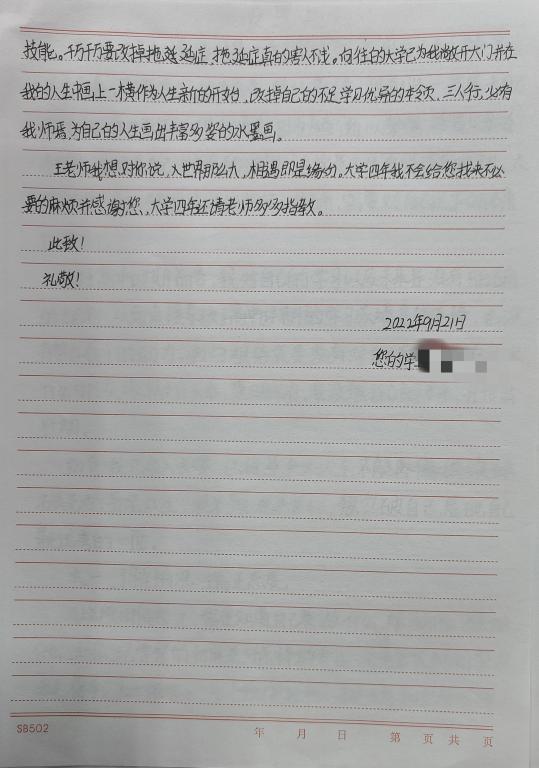 技能。千万千万要改掉拖延症,拖延症真的害人不浅。向往的大学已为我敞开大门并在
我的人生中画上一横作为人生新的开始,改掉自己的不足学习优异的本领,三人行,必有
我师焉,为自己的人生画出丰富多姿的水墨画。
王老师我想对你说,人世界那么大,相遇即是缘分。大学四年我不会给您找来不必
要的麻烦并感谢您、大学四年还请老师多多指教。
此致!
礼敬!
2022年9月21日
您的学
SB502
年 月 日 第 页 共 页